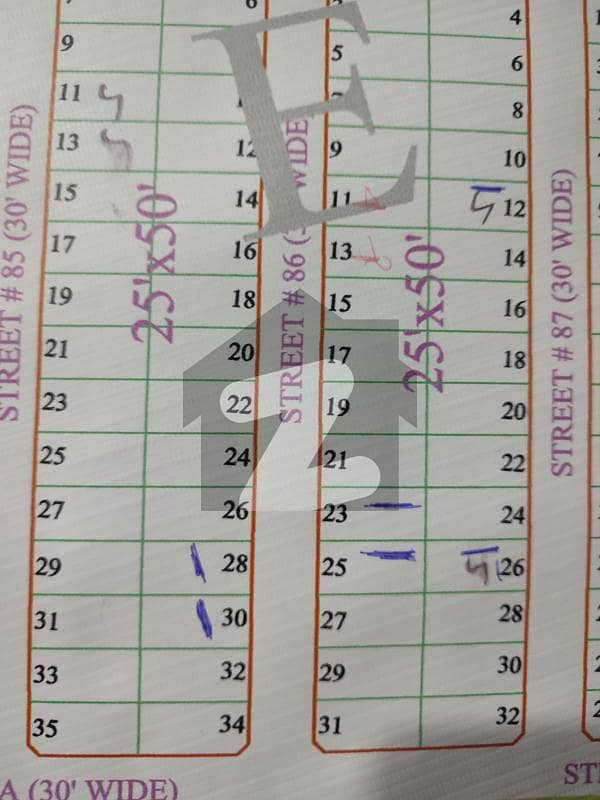 4
9 5 6
11 8
13 12 9 10
15 14 11 12
17 16 13 14
19 18 15 16
21 20 17 18
23 22 19 20
25 24 21 22
27 26 23 24
29 28 25 26
31 30 27 28
33 32 29 30
35 34 31 32
STREET # 85 (30' WIDE)
25'x50'
STREET # 86 (
WIDE
25'x50'
STREET # 87 (30' WIDE)
A (30' WIDE)
E
Z